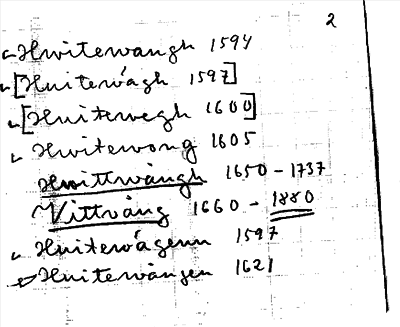 2
Hwitewangh 1594
[Huitewågh 1597]
[Huitewegh 1600]
Hwitewong 1605
Hwittwångh 1650 - 1737
Vittvång 1660 - 1880
Huitewågenn 1597
Huitewången 1621